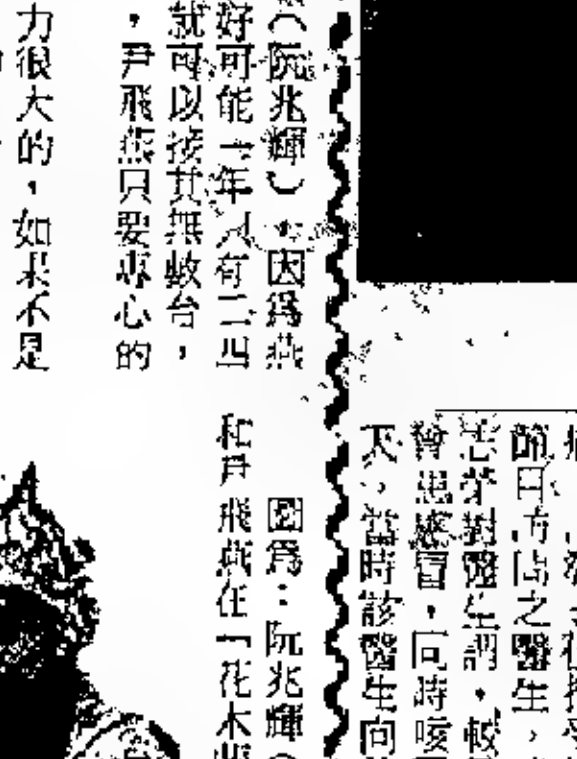 （阮兆輝），因為燕
好可能一年只有二四
就可以接其無數台，
，尹飛燕只要專心的
力很大的，如果不是
圖為：阮兆輝
和尹飛燕在「花木
節目，有島之醫生，
志榮對醫生謂，較
曾患感冒，同時咳
天，當時該醫生向